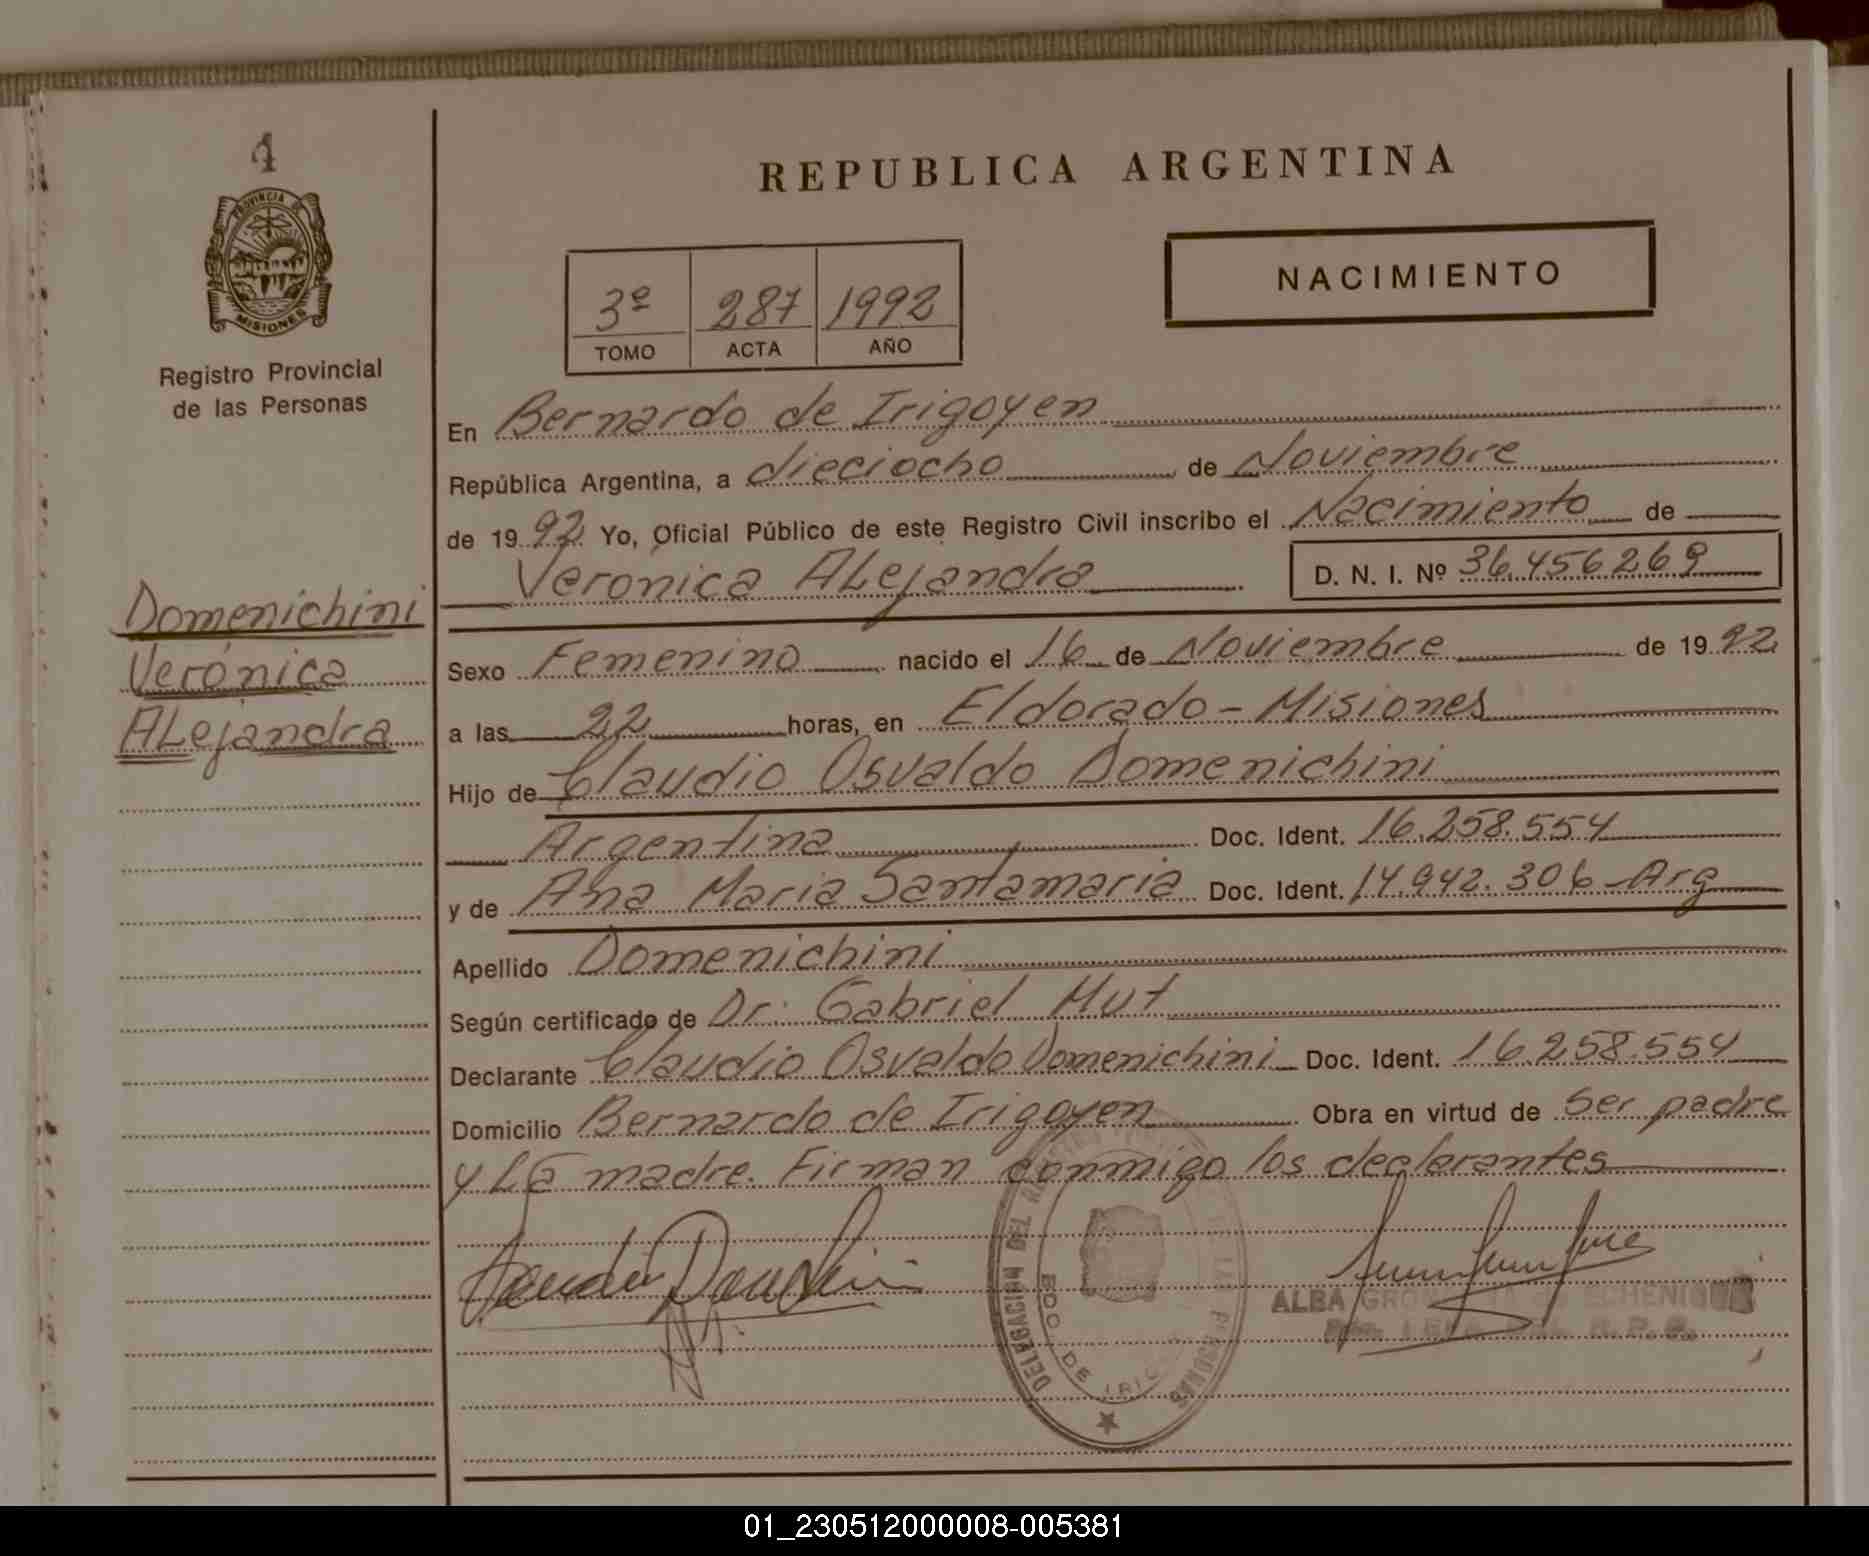 4
PROVINCIA DE
MISIONES
Registro Provincial
de las Personas
Domenichini
Verónica
ALejandra
REPUBLICA ARGENTINA
NACIMIENTO
3º 287 1992
TOMO ACTA AÑO
En Bernardo de Irigoyen
República Argentina, a dieciocho de Noviembre
de 1992 Yo, Oficial Público de este Registro Civil inscribo el Nacimiento de
Verónica ALejandra D. N. I. Nº 36.456269
Sexo Femenino nacido el 16 de Noviembre de 1992
a las 22 horas, en Eldorado - Misiones
Hijo de Claudio Osvaldo Domenichini
Argentina Doc. Ident. 16.258.554
y de Ana Maria Santamaria Doc. Ident. 14.942.306 - Arg
Apellido Domenichini
Según certificado de Dr. Gabriel Mut
Declarante Claudio Osvaldo Domenichini Doc. Ident. 16.258.554
Domicilio Bernardo de Irigoyen Obra en virtud de Ser padre
y La madre. Firman conmigo los declarantes
DELEGACION DEL
BDO. DE IRIG
ALBA
01_230512000008-005381